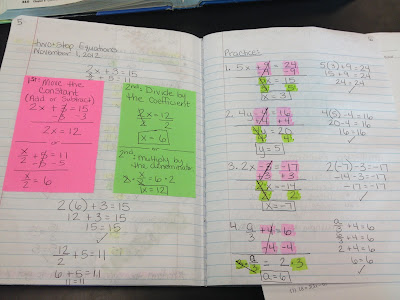 5
Two-Step Equations
November 1, 2012
2x + 3 = 15
x/2 + 5 = 11
1st: Move the
Constant
(Add or Subtract)
2x + 3 = 15
-3 -3
2x = 12
or
x/2 + 5 = 11
-5 -5
x/2 = 6
2nd: Divide by
the coefficient
2x = 12
2 2
x = 6
or
2nd: Multiply by
the denominator
2 · x/2 = 6 · 2
x = 12
2(6) + 3 = 15
12 + 3 = 15
15 = 15
12/2 + 5 = 11
6 + 5 = 11
Practice:
1. 5x + 9 = 24
-9 -9
5x = 15
5 5
x = 3
5(3) + 9 = 24
15 + 9 = 24
24 = 24
2. 4y - 4 = 16
+4 +4
4y = 20
4 4
y = 5
4(5) - 4 = 16
20 - 4 = 16
16 = 16
3. 2x - 3 = -17
+3 +3
2x = -14
2 2
x = -7
2(-7) - 3 = -17
-14 - 3 = -17
-17 = -17
4. a/3 + 4 = 6
-4 -4
3 · a/3 = 2 · 3
a = 6
a/3 + 4 = 6
6/3 + 4 = 6
2 + 4 = 6
6 = 6